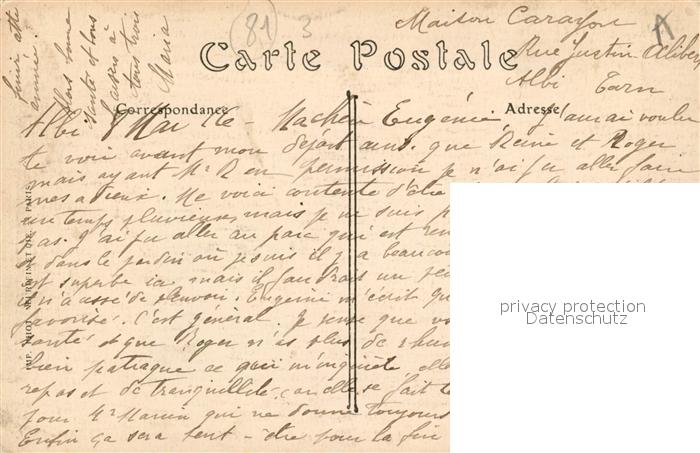 81
3
A
Maison Carayon
Rue Justin Alibert
Albi Tarn
Carte Postale
Correspondance
Adresse
Albi 8 Mai 16 - Ma chère Eugénie, J'aurai voulu
te voir avant mon départ ainsi que Reine et Roger
mais ayant Mr R en permission je n'ai pu aller faire
mes adieux. Me voici contente d'être
un temps pluvieuse, mais je ne suis p
as. J'ai pu aller au parc qui est
dans le jardin où je suis il y a beaucou
est superbe ici mais il faudrais un peu
n'a assé de pleuvoir. Eugenie m'écrit qu
favorisé. C'est général. Je pense que vo
santé et que Roger n'as plus de rhum
bien patraque ce qui m'inquiète elle
repos et de tranquillité, car elle se fait
pour Mr Marien qui ne donne toujours
Enfin ça sera peut-être pour la fin
finir cette
année.
Alors bonne
santé et bons
baisers à
tous trois
Maria
IMP. PHOT. NEURDEIN ET CIE. PARIS
privacy protection
Datenschutz